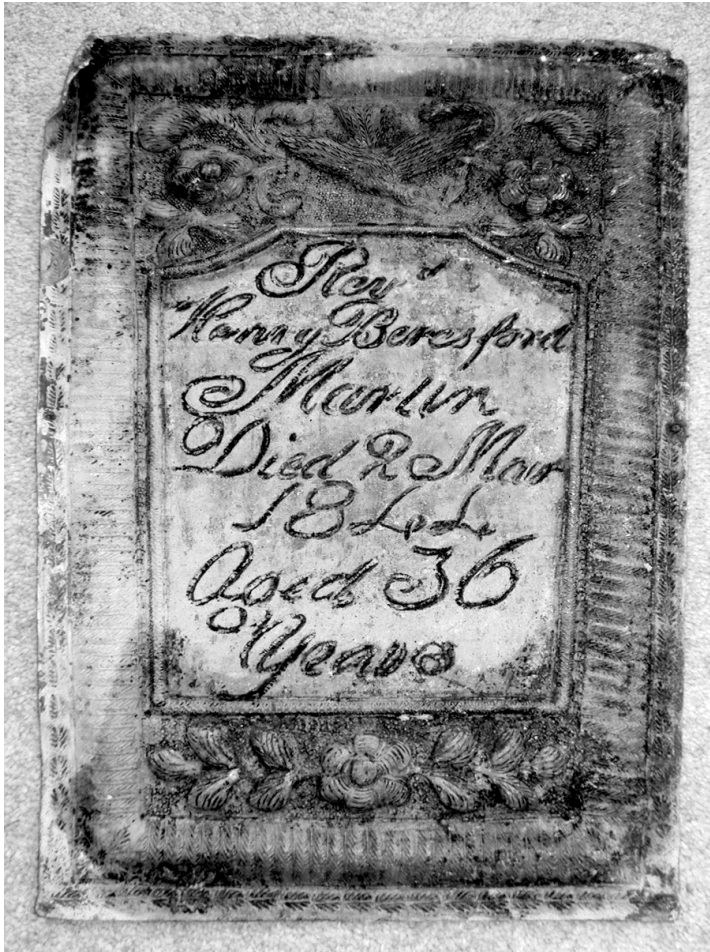 Revd
Hanny Beresford
Martin
Died 2 Mar
1844
Aged 36
Years